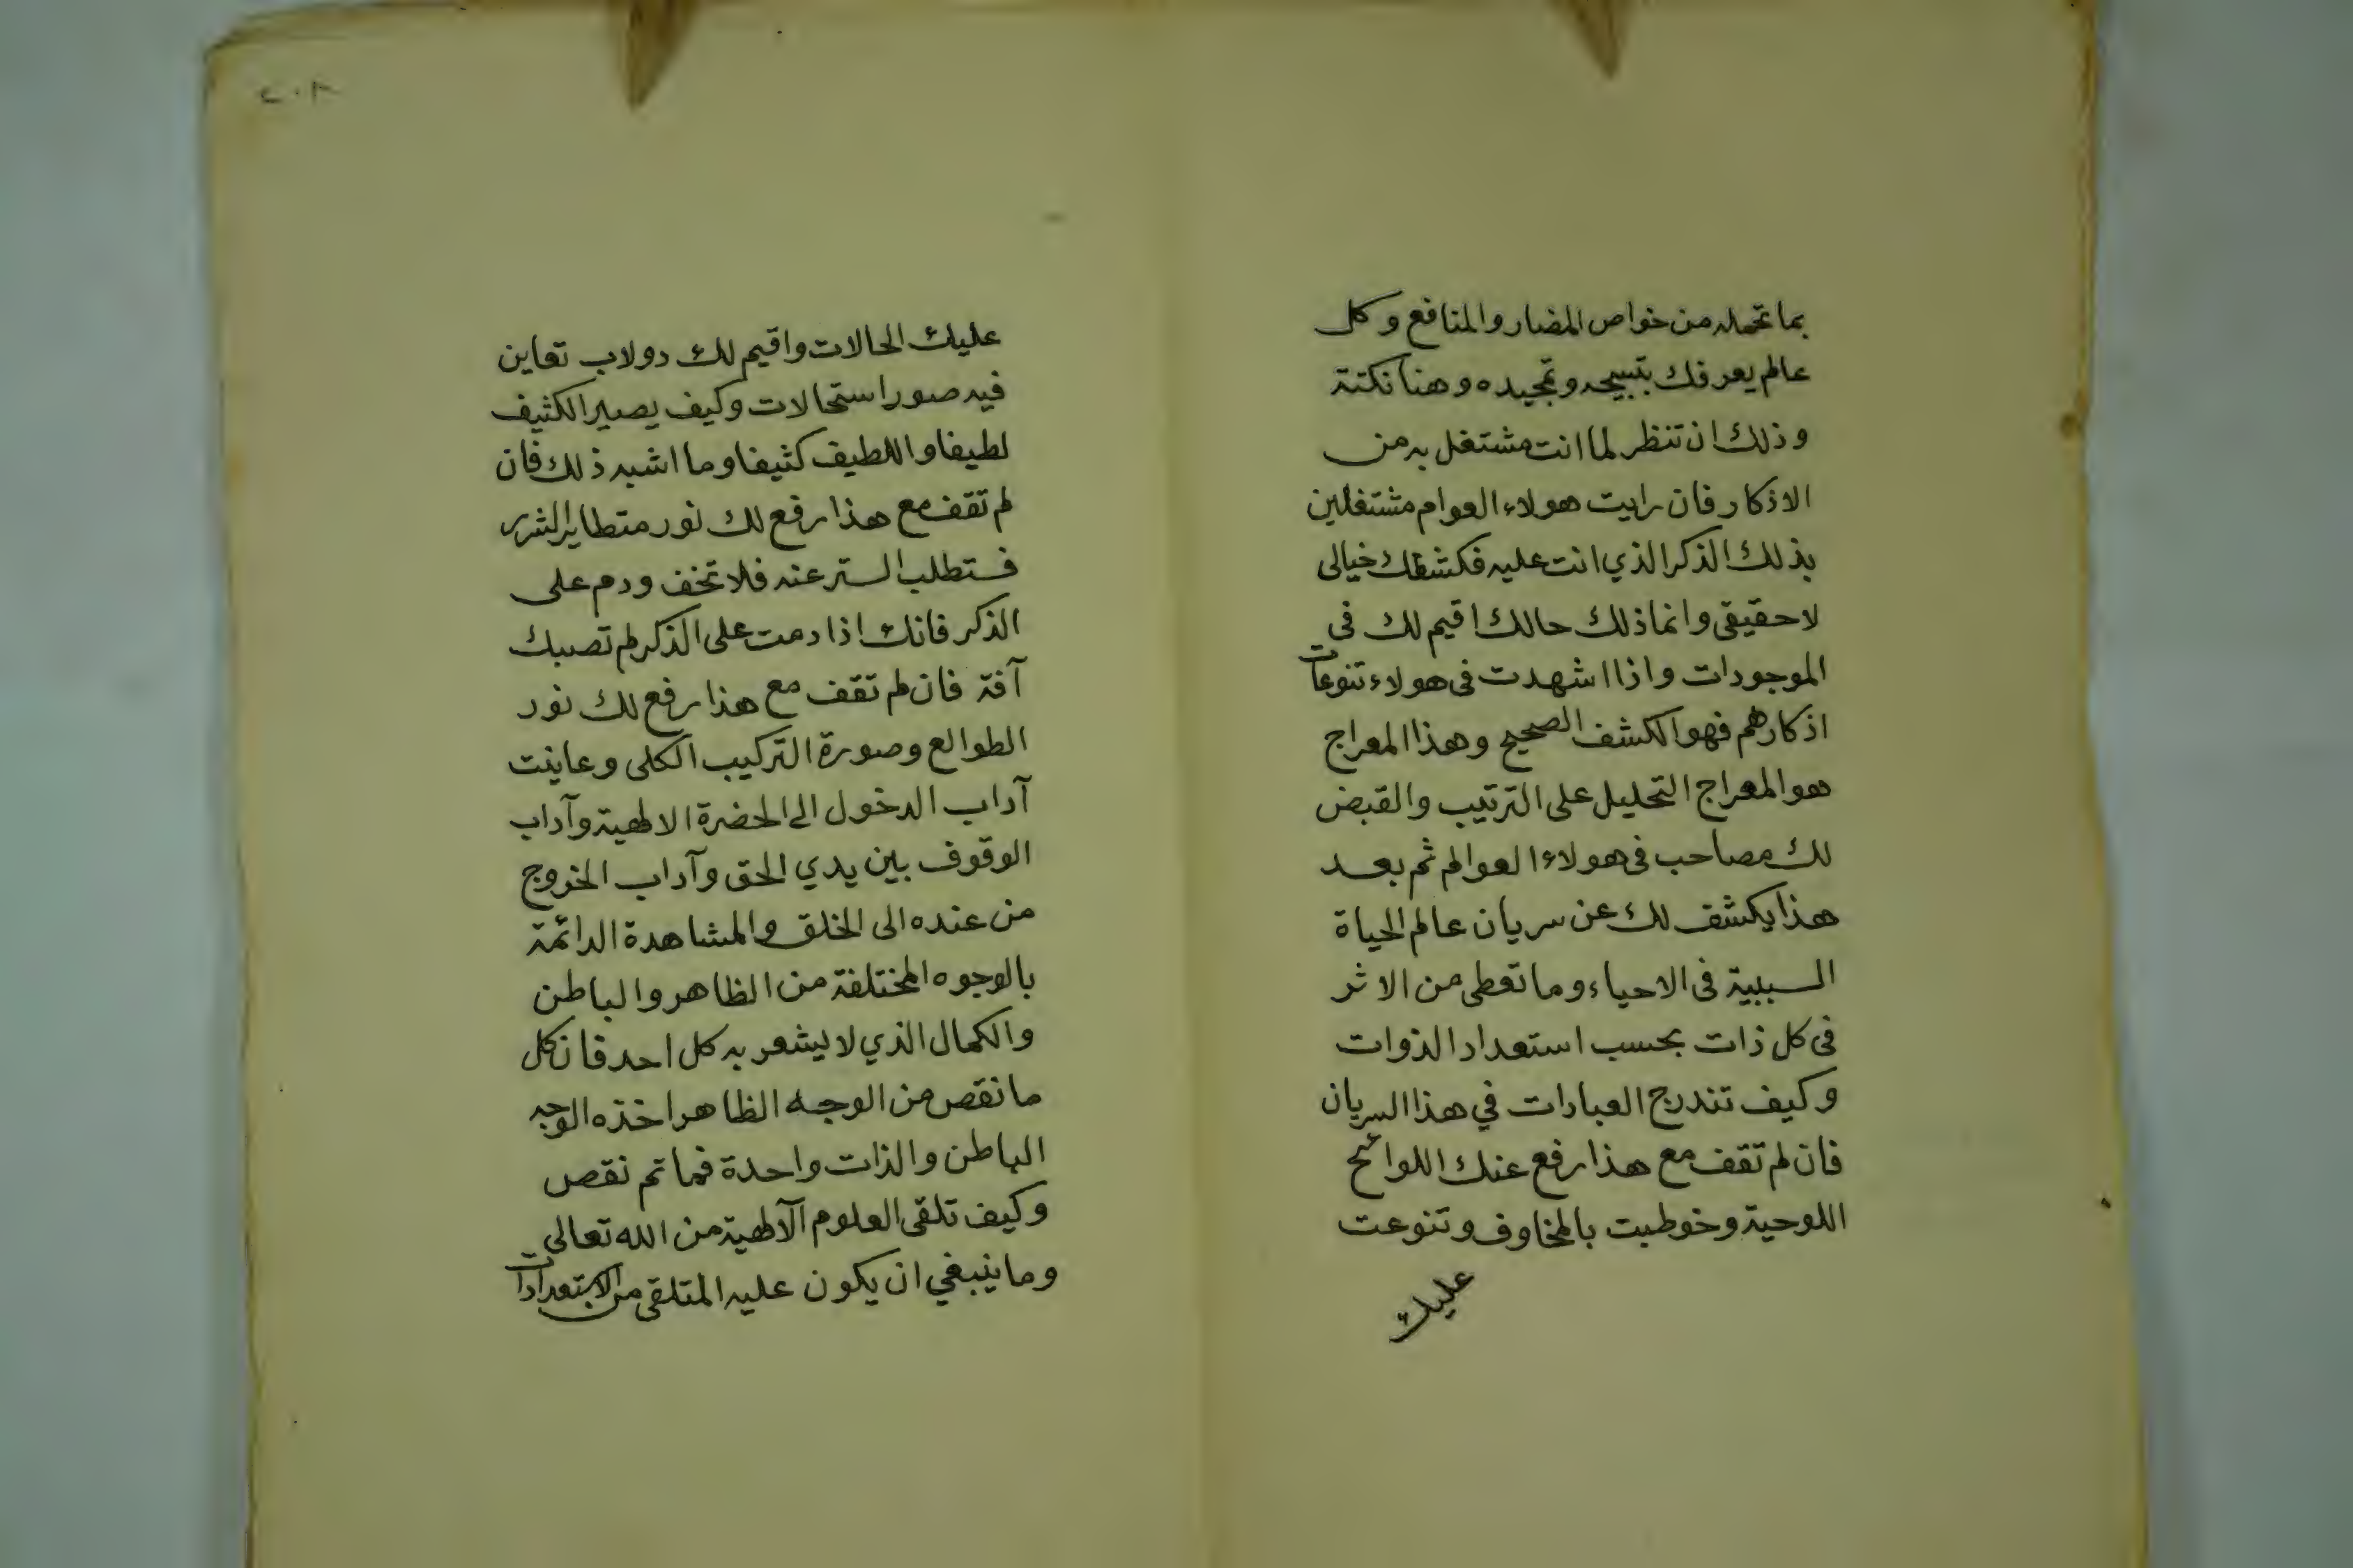 بما تحمله من خواص المضار والمنافع وكل
عالم يعرفك بتسبيحه وتمجيده وهنا نكتة
وذلك ان تنظر لما انت مشتغل به من
الاذكار فان رايت هولاء العوام مشتغلين
بذلك الذكر الذي انت عليه فكشفك خيالى
لا حقيقى وانما ذلك حالك اقيم لك فى
الموجودات واذا اشهدت فى هولاء تنوعات
اذكارهم فهو الكشف الصحيح وهذا المعراج
هو المعراج التحليل على الترتيب والقبض
لك مصاحب فى هولاء العوالم ثم بعد
هذا يكشف لك عن سريان عالم الحياة
السببية فى الاحياء وما تعطى من الاثر
فى كل ذات بحسب استعداد الذوات
وكيف تندرج العبادات في هذا السريان
فان لم تقف مع هذا رفع عنك اللوائح
اللوحية وخوطبت بالمخاوف وتنوعت
عليك
٢٠٨
عليك الحالات واقيم لك دولاب تعاين
فيه صور استحالات وكيف يصير الكثيف
لطيفا واللطيف كثيفا وما اشبه ذلك فان
لم تقف مع هذا رفع لك نور متطاير الشرر
فستطلب الستر عنه فلا تخف ودم على
الذكر فانك اذا دمت على الذكر لم تصبك
آفة فان لم تقف مع هذا رفع لك نور
الطوالع وصورة التركيب الكلى وعاينت
آداب الدخول الى الحضرة الالهية وآداب
الوقوف بين يدي الحق وآداب الخروج
من عنده الى الخلق والمشاهدة الدائمة
بالوجوه المختلفة من الظاهر والباطن
والكمال الذي لا يشعر به كل احد فان كل
ما نقص من الوجه الظاهر اخذه الوجه
الباطن والذات واحدة فما تم نقص
وكيف تلقى العلوم الآلهية من الله تعالى
وما ينبغي ان يكون عليه المتلقى من الاستعدادات